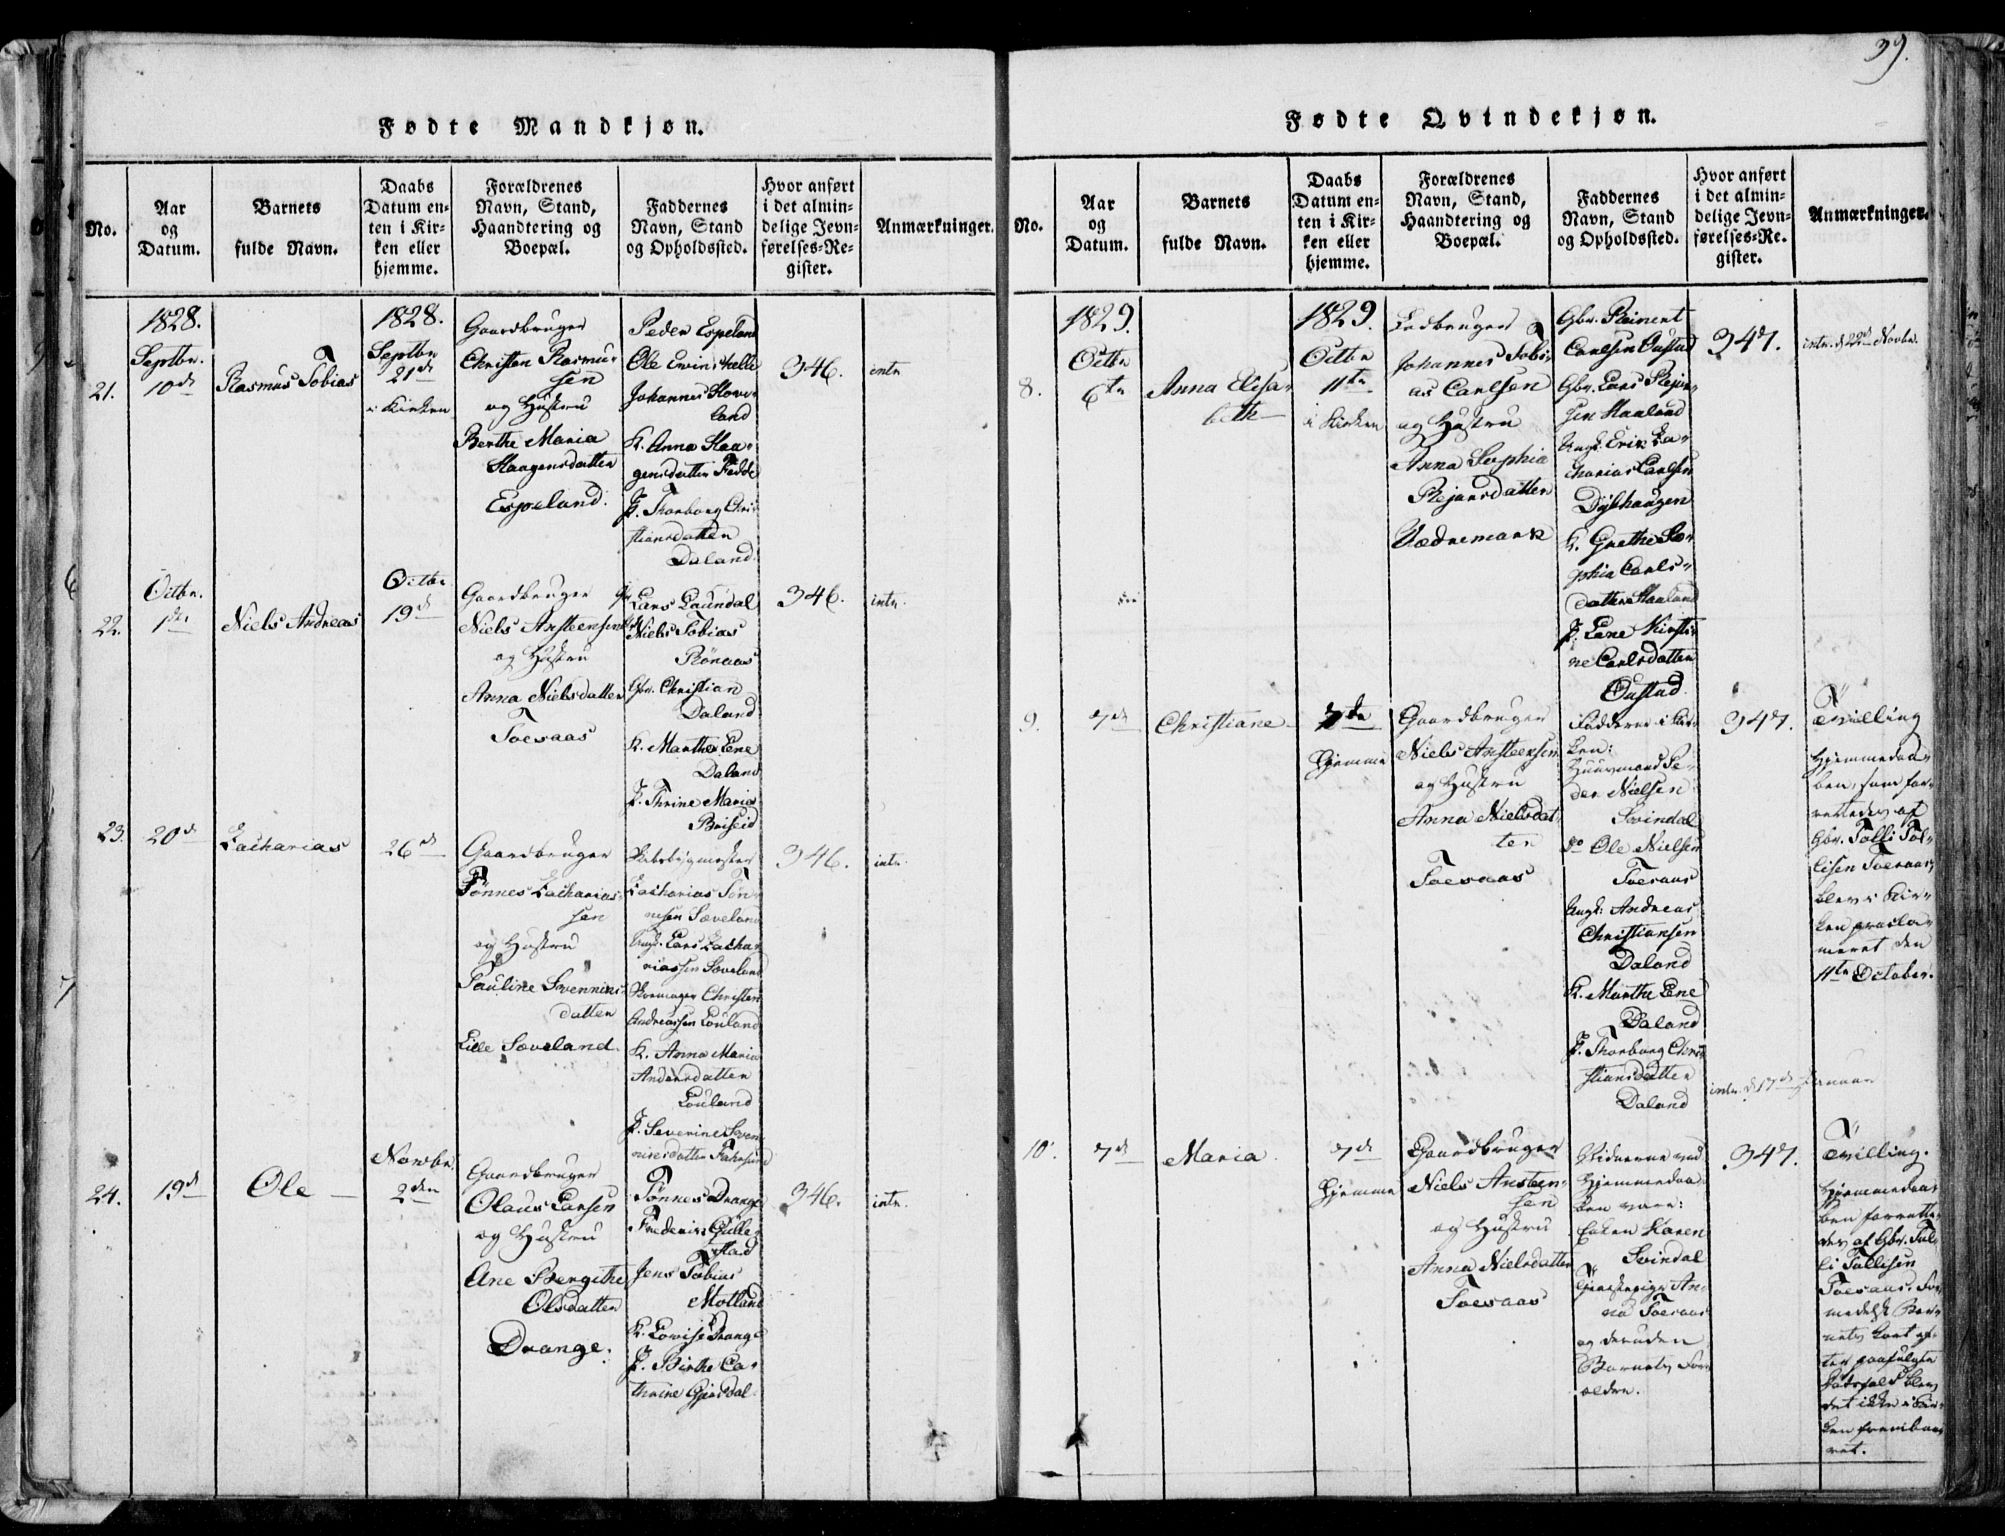 39.
Fødte Mandkjøn.
No.
Aar
og
Datum.
Barnets
fulde Navn.
Daabs
Datum en-
ten i Kir-
ken eller
hjemme.
Forældrenes
Navn, Stand,
Haandtering og
Boepæl.
Faddernes
Navn, Stand
og Opholdssted.
Hvor anført
i det almin-
delige Jevn-
førelses-Re-
gister.
Anmærkninger.
21.
1828.
Septbr.
10de
Rasmus Tobias
1828.
Septbr
21de
i Kirken
Gaardbruger
Christen Rasmu-
sen
og Hustru
Berthe Maria
Haagensdatter
Espeland.
Peder Espeland
Ole Ervinshelle
Johannes Hove-
land
K. Anna Haa-
gensdatter Fedde
P. Thorborg Chri-
stiansdatter
Daland.
346.
intr
22.
Octbr.
1ste
Niels Andreas
Octbr
19de
Gaardbruger
Niels Ansteensen
og Hustru
Anna Nielsdatter
Toesaas
Lars Laundal
Niels Tobias
Rönaas
Gbr. Christian
Daland
K. Marthe Lene
Daland
P. Thrine Maria
Briseid
346.
intr.
23.
20de
Zacharias
26de
Gaardbruger
Tønnes Zacharias-
sen
og Hustru
Pauline Svennins-
datter
Lille Sæveland.
Zacharias Tön-
nesen Sæveland
Ungk. Lars Zacha-
riassen Sæveland
Skomager Christen
Andreassen Louland
K. Anna Maria
Andersdatter
Louland
P. Severine Sven-
ninsdatter Fahrsund
346.
intr.
24.
19de
Ole
Novbr.
2den
Gaardbruger
Olaus Larsen
og Hustru
Ane Bergithe
Olsdatter
Drange.
Tönnes Drange
Frederic Gulle-
stad
Jens Tobias
Motland
K. Lovise Drange
P. Birthe Ca-
thrine Gjerdal.
346.
intr.
Fødte Qvindekjøn.
No.
Aar
og
Datum.
Barnets
fulde Navn.
Daabs
Datum en-
ten i Kir-
ken eller
hjemme.
Forældrenes
Navn, Stand,
Haandtering og
Boepæl.
Faddernes
Navn, Stand
og Opholdssted.
Hvor anført
i det almin-
delige Jevn-
førelses-Re-
gister.
Anmærkninger.
8.
1829.
Octbr
6te
Anna Elisa-
beth
1829.
Octbr
11te
i Kirken
Ledbruger
Johannes Tobi-
as Carlsen
og Hustru
Anna Sophia
Rejersdatter
Vædremark
Gbr. Reinert
Carlsen Oustad
Gbr. Lars Rejer-
sen Haaland
Ungk. Erik Za-
charias Carlsen
Dybhaugen
K. Grethe So-
phia Carls-
datter Haaland
P. Lene Kirsti-
ne Carlsdatter
Oustad.
347.
intr. d. 22de Novbr.
9.
7de
Christiane
7de
Hjemme
Gaardbruger
Niels Ansteensen
og Hustru
Anna Nielsdat-
ter
Toesaas
Fadderne i Kir-
ken:
Huusmand Pe-
der Nielsen
Svindal
do Ole Nielsen
Toesaas
Ungk: Andreas
Christiansen
Daland
K. Marthe Lene
Daland
P. Thorborg Chri-
stiansdatter
Daland
347.
intr. d. 17de Januar
Tvilling
Hjemmedaa-
ben, som for-
rettedes af
Gbr. Tolli Tol-
lisen Toesaas,
blev i Kir-
ken procla-
meret den
11te October.
10.
7de
Maria
7de
Hjemme
Gaardbruger
Niels Ansteen-
sen
og Hustru
Anna Nielsdatter
Toesaas
Vidnerne ved
Hjemmedaa-
ben vare:
Enken Karen
Svindal
Tjenestepige An-
na Toesaas
og desuden
Barnets For-
ældre.
347.
Tvilling.
Hjemmedaa-
ben forrette-
des af Gbr. Tol-
li Tollisen
Toesaas. For-
medelst Bar-
nets kort ef-
ter paafulgte
Dödsfald blev
det ikke i Kir-
ken frembaa-
ret.